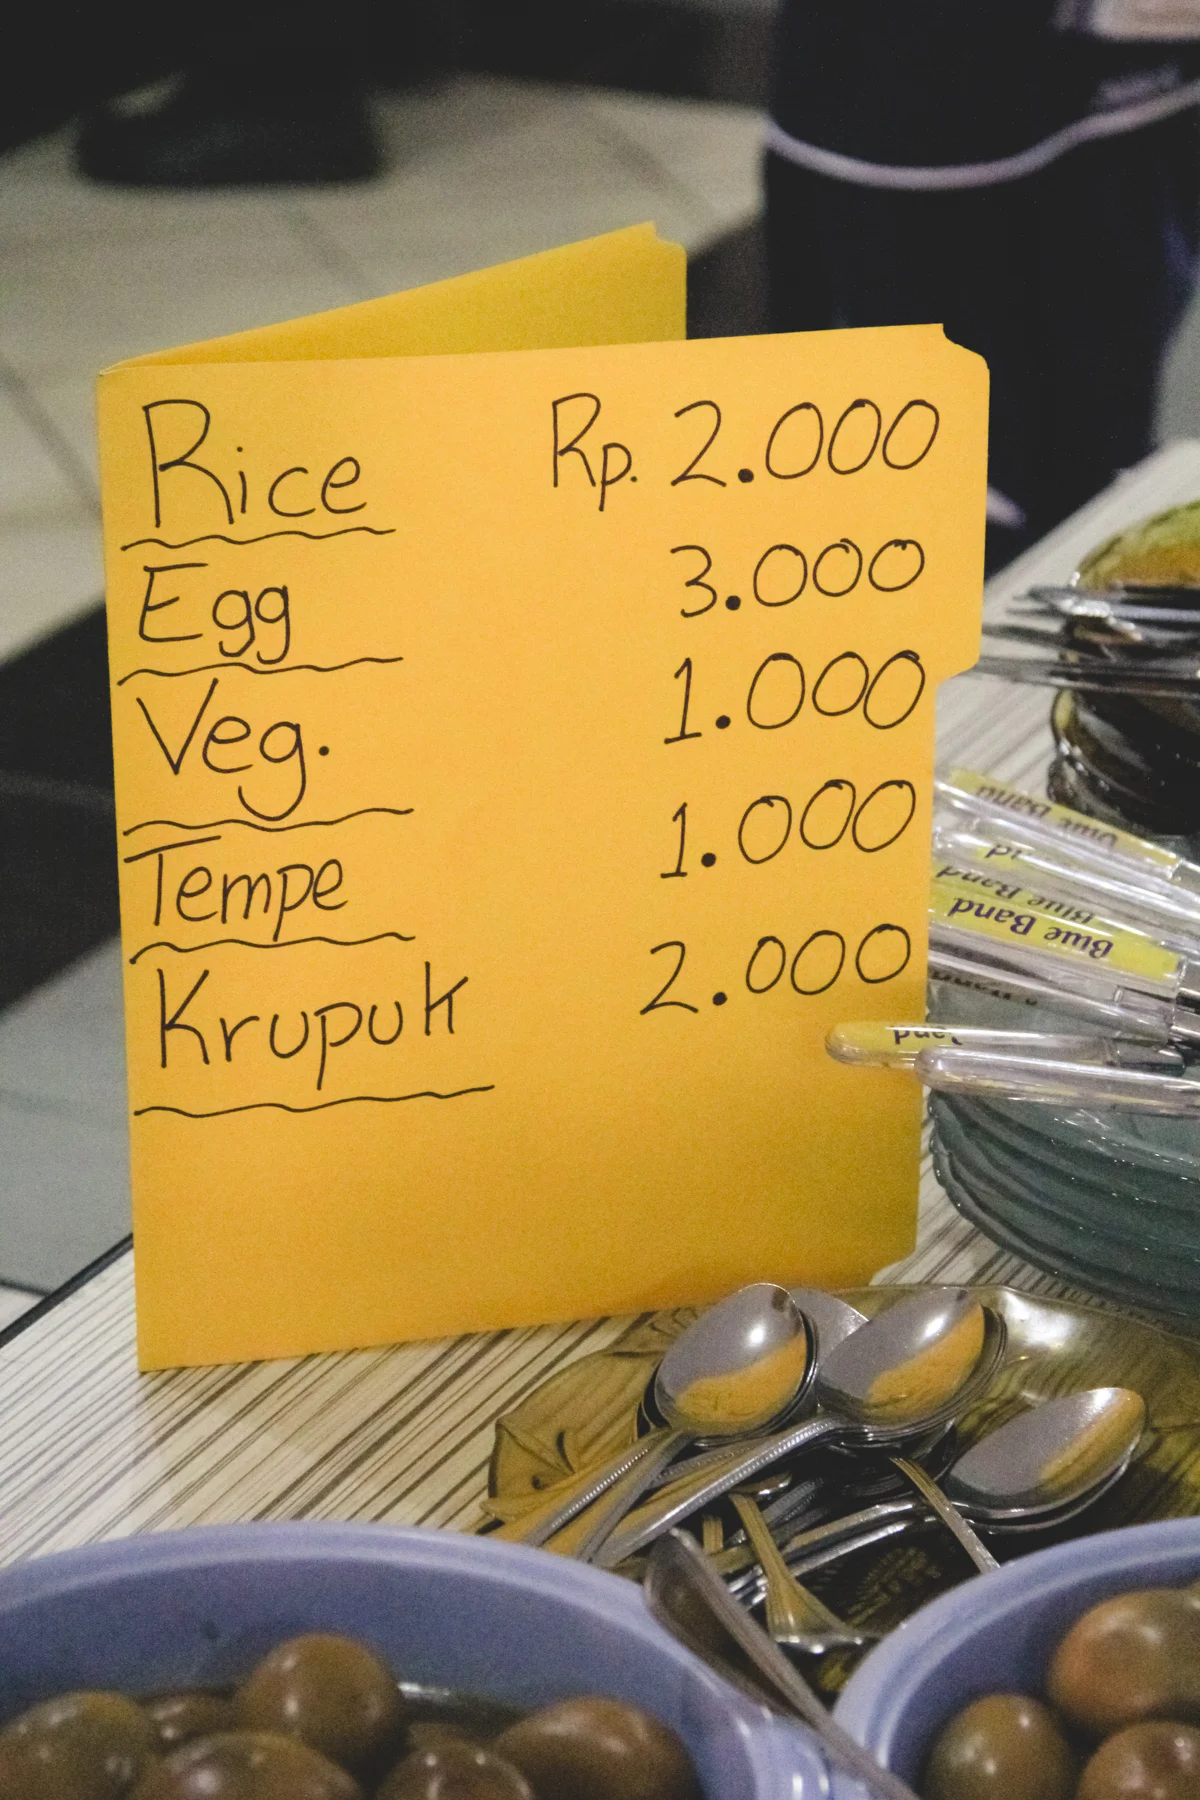 Rice Rp. 2.000
Egg 3.000
Veg. 1.000
Tempe 1.000
Krupuk 2.000
Blue Band
Blue Band
Blue Band
Blue Band